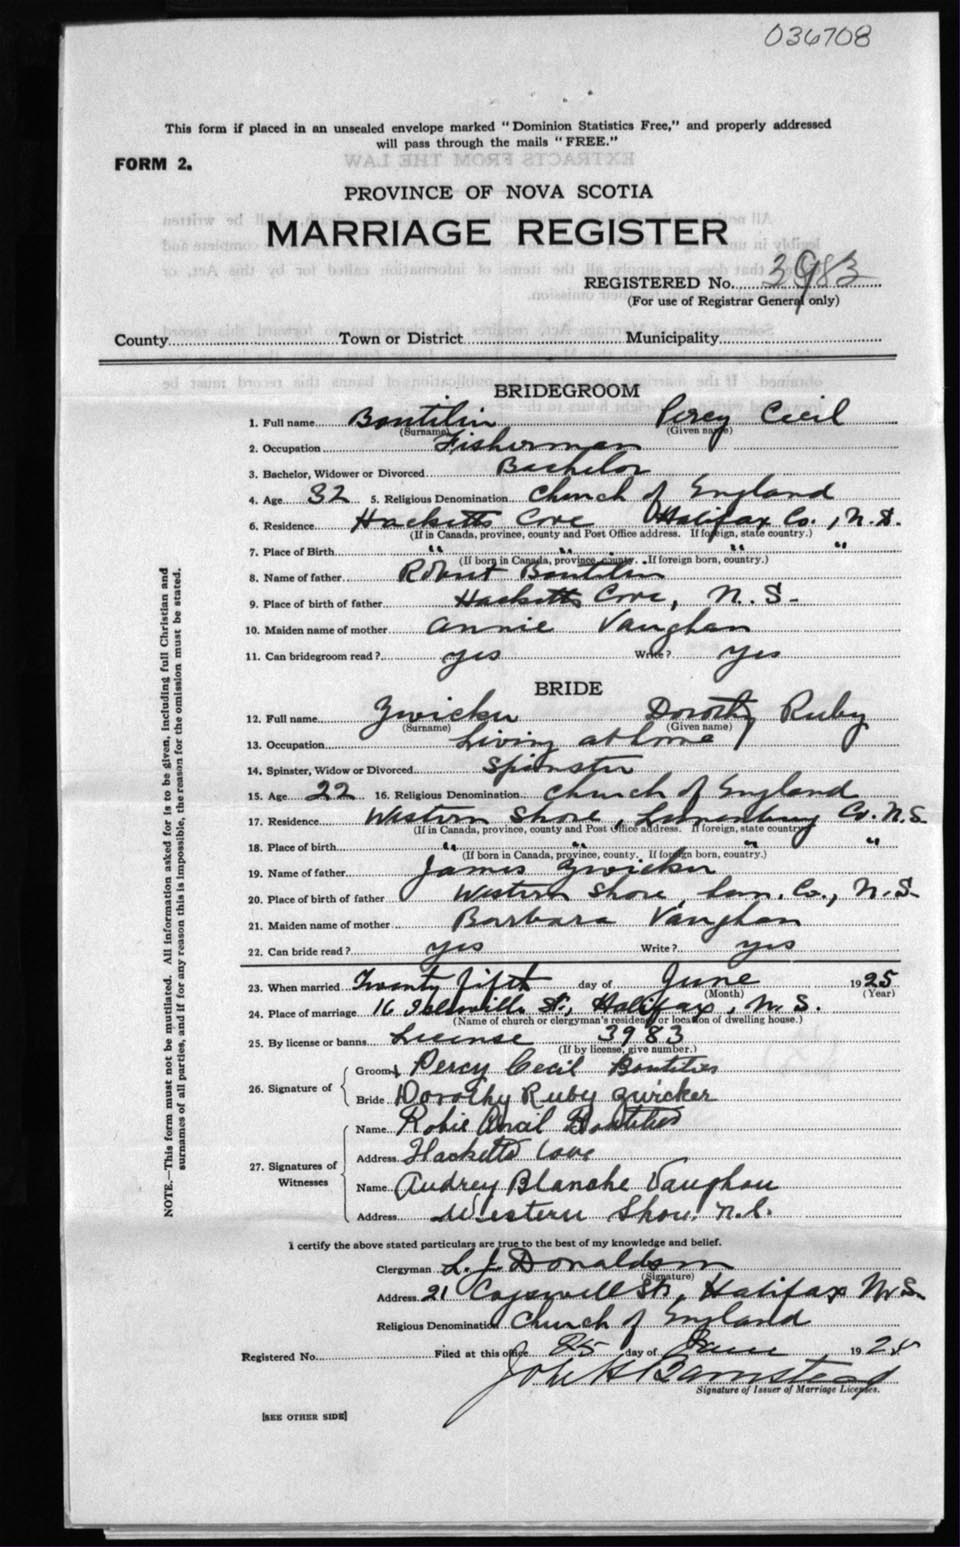 036708
This form if placed in an unsealed envelope marked "Dominion Statistics Free," and properly addressed
will pass through the mails "FREE."
FORM 2.
PROVINCE OF NOVA SCOTIA
MARRIAGE REGISTER
REGISTERED No. 3983
(For use of Registrar General only)
County Town or District Municipality
BRIDEGROOM
1. Full name Boutilier Percy Cecil
(Surname) (Given name)
2. Occupation Fisherman
3. Bachelor, Widower or Divorced Bachelor
4. Age 32 5. Religious Denomination Church of England
6. Residence Hacketts Cove Halifax Co., N.S.
(If in Canada, province, county and Post Office address. If foreign, state country.)
7. Place of Birth " " " "
(If born in Canada, province, county. If foreign born, country.)
8. Name of father Robert Boutilier
9. Place of birth of father Hacketts Cove, N.S.
10. Maiden name of mother Annie Vaughan
11. Can bridegroom read? yes Write? yes
BRIDE
12. Full name Zwicker Dorothy Ruby
(Surname) (Given name)
13. Occupation Living at home
14. Spinster, Widow or Divorced Spinster
15. Age 22 16. Religious Denomination Church of England
17. Residence Western Shore, Lunenburg Co. N.S.
(If in Canada, province, county and Post Office address. If foreign, state country)
18. Place of birth " " " "
(If born in Canada, province, county. If foreign born, country.)
19. Name of father James Zwicker
20. Place of birth of father Western Shore, Lun. Co., N.S.
21. Maiden name of mother Barbara Vaughan
22. Can bride read? yes Write? yes
23. When married Twenty fifth day of June 1925
(Month) (Year)
24. Place of marriage 16 St., Halifax, N.S.
(Name of church or clergyman's residence or location of dwelling house.)
25. By license or banns License 3983
(If by license, give number.)
26. Signature of
Groom Percy Cecil Boutilier
Bride Dorothy Ruby Zwicker
27. Signatures of Witnesses
Name Robie Boutilier
Address Hacketts Cove
Name Audrey Blanche Vaughan
Address Western Shore N.S.
I certify the above stated particulars are true to the best of my knowledge and belief.
Clergyman L. J. Donaldson
(Signature)
Address 21 Cogswell St, Halifax N.S.
Religious Denomination Church of England
Registered No. Filed at this office 25 day of June 1925
John H Barnstead
Signature of Issuer of Marriage Licenses.
[SEE OTHER SIDE]
NOTE.—This form must not be mutilated. All information asked for is to be given, including full Christian and
surnames of all parties, and if for any reason this is impossible, the reason for the omission must be stated.